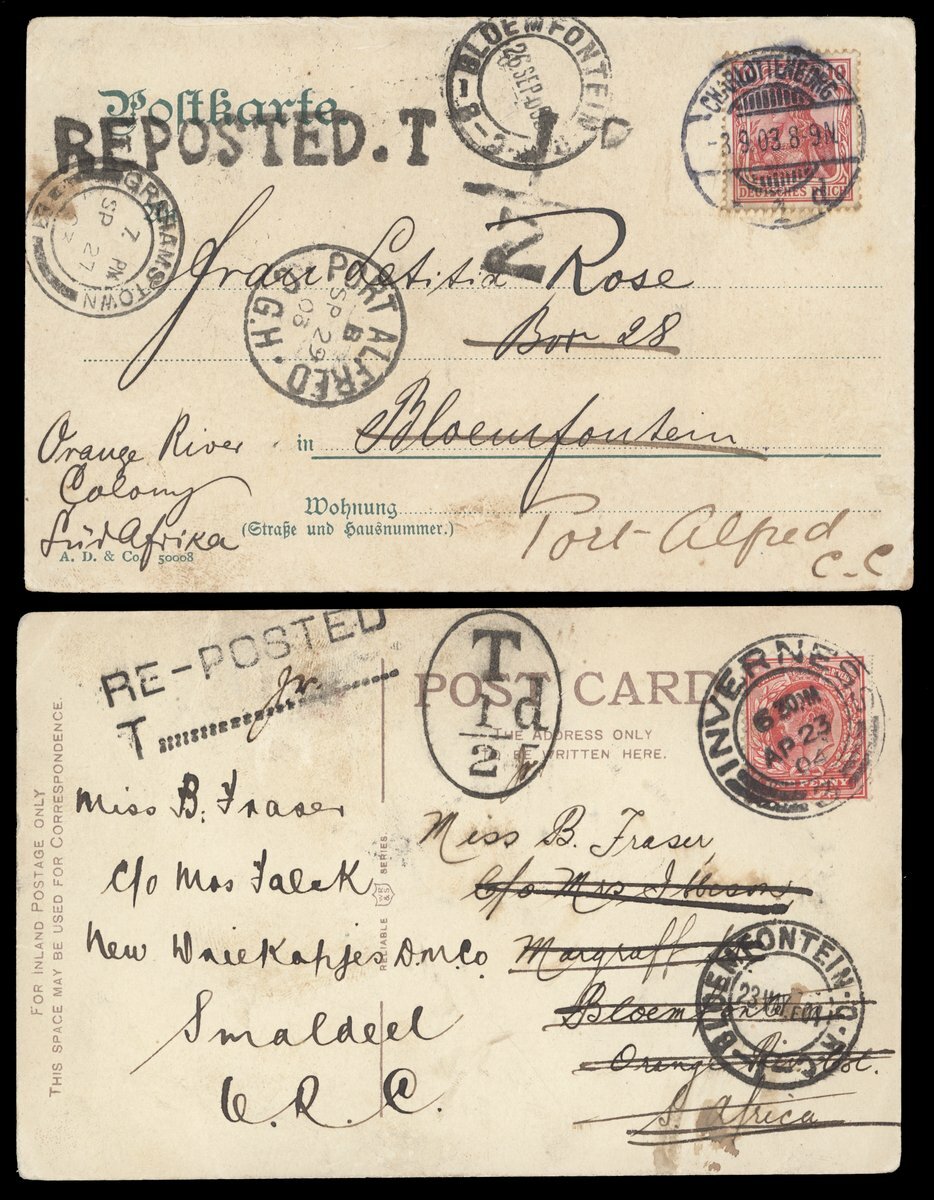 Postkarte.
REPOSTED. T
BLOEMFONTEIN
26 SEP 03
CHARLOTTENBURG
-3.9.03.8-9N.
DEUTSCHES REICH
GRAHAMSTOWN
7 PM
SP 27
03
PORT ALFRED · C.G.H.
B
SP 29
03
Frau Letitia Rose
Box 28
in Bloemfontein
Orange River
Colony
Süd Afrika
Wohnung
(Straße und Hausnummer.)
A. D. & Co. 50008
Port-Alfred
C.C
RE-POSTED
T
T
1d
25
POST CARD
THE ADDRESS ONLY
TO BE WRITTEN HERE.
INVERNESS
6 30PM
AP 23
04
FOR INLAND POSTAGE ONLY
THIS SPACE MAY BE USED FOR CORRESPONDENCE.
RELIABLE SERIES
Miss B. Fraser
c/o Mrs Falck
New Driekopjes D.M.Co
Smaldeel
O.R.C.
Miss B. Fraser,
c/o Mrs Ibbison
Margraff
Bloemfontein
Orange Riv. Col.
S. Africa
BLOEMFONTEIN·O·R·C
23 MAY 04